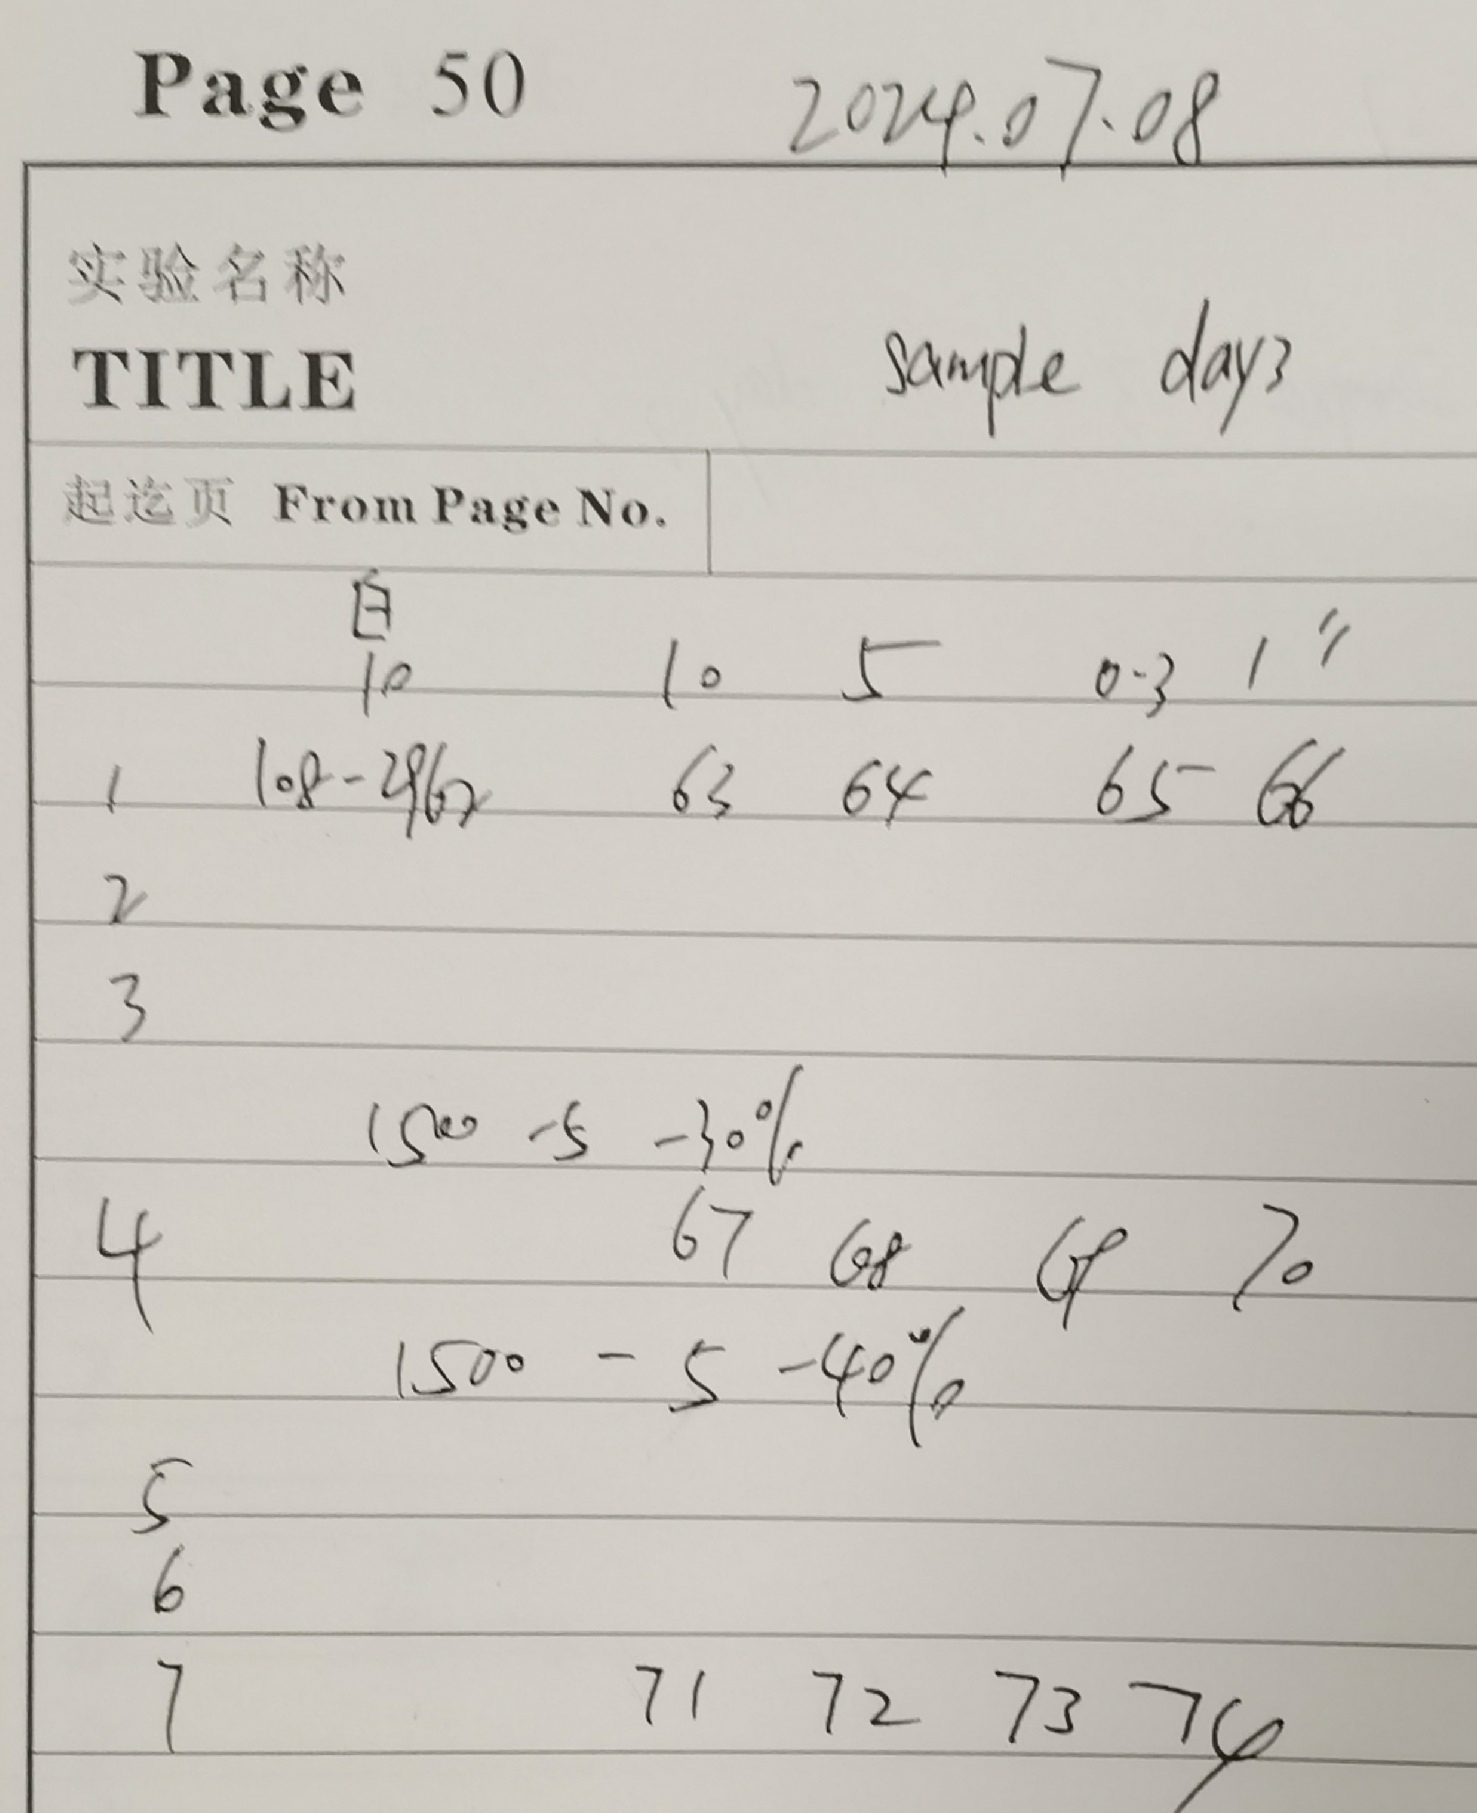 Page 50 2024.07.08
实验名称
TITLE sample day3
起迄页 From Page No.
白
10 10 5 0.3 1 〃
1 108-2962 63 64 65 66
2
3
1500 -5 -30%
4 67 68 69 70
1500 - 5 -40%
5
6
7 71 72 73 74